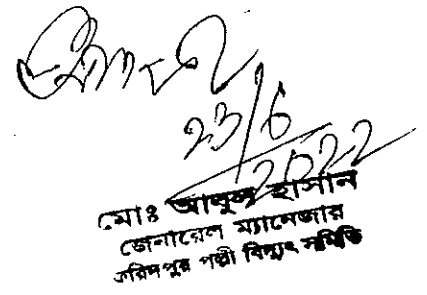 23/6
2022
মোঃ আবুল হাসান
জেনারেল ম্যানেজার
ফরিদপুর পল্লী বিদ্যুৎ সমিতি